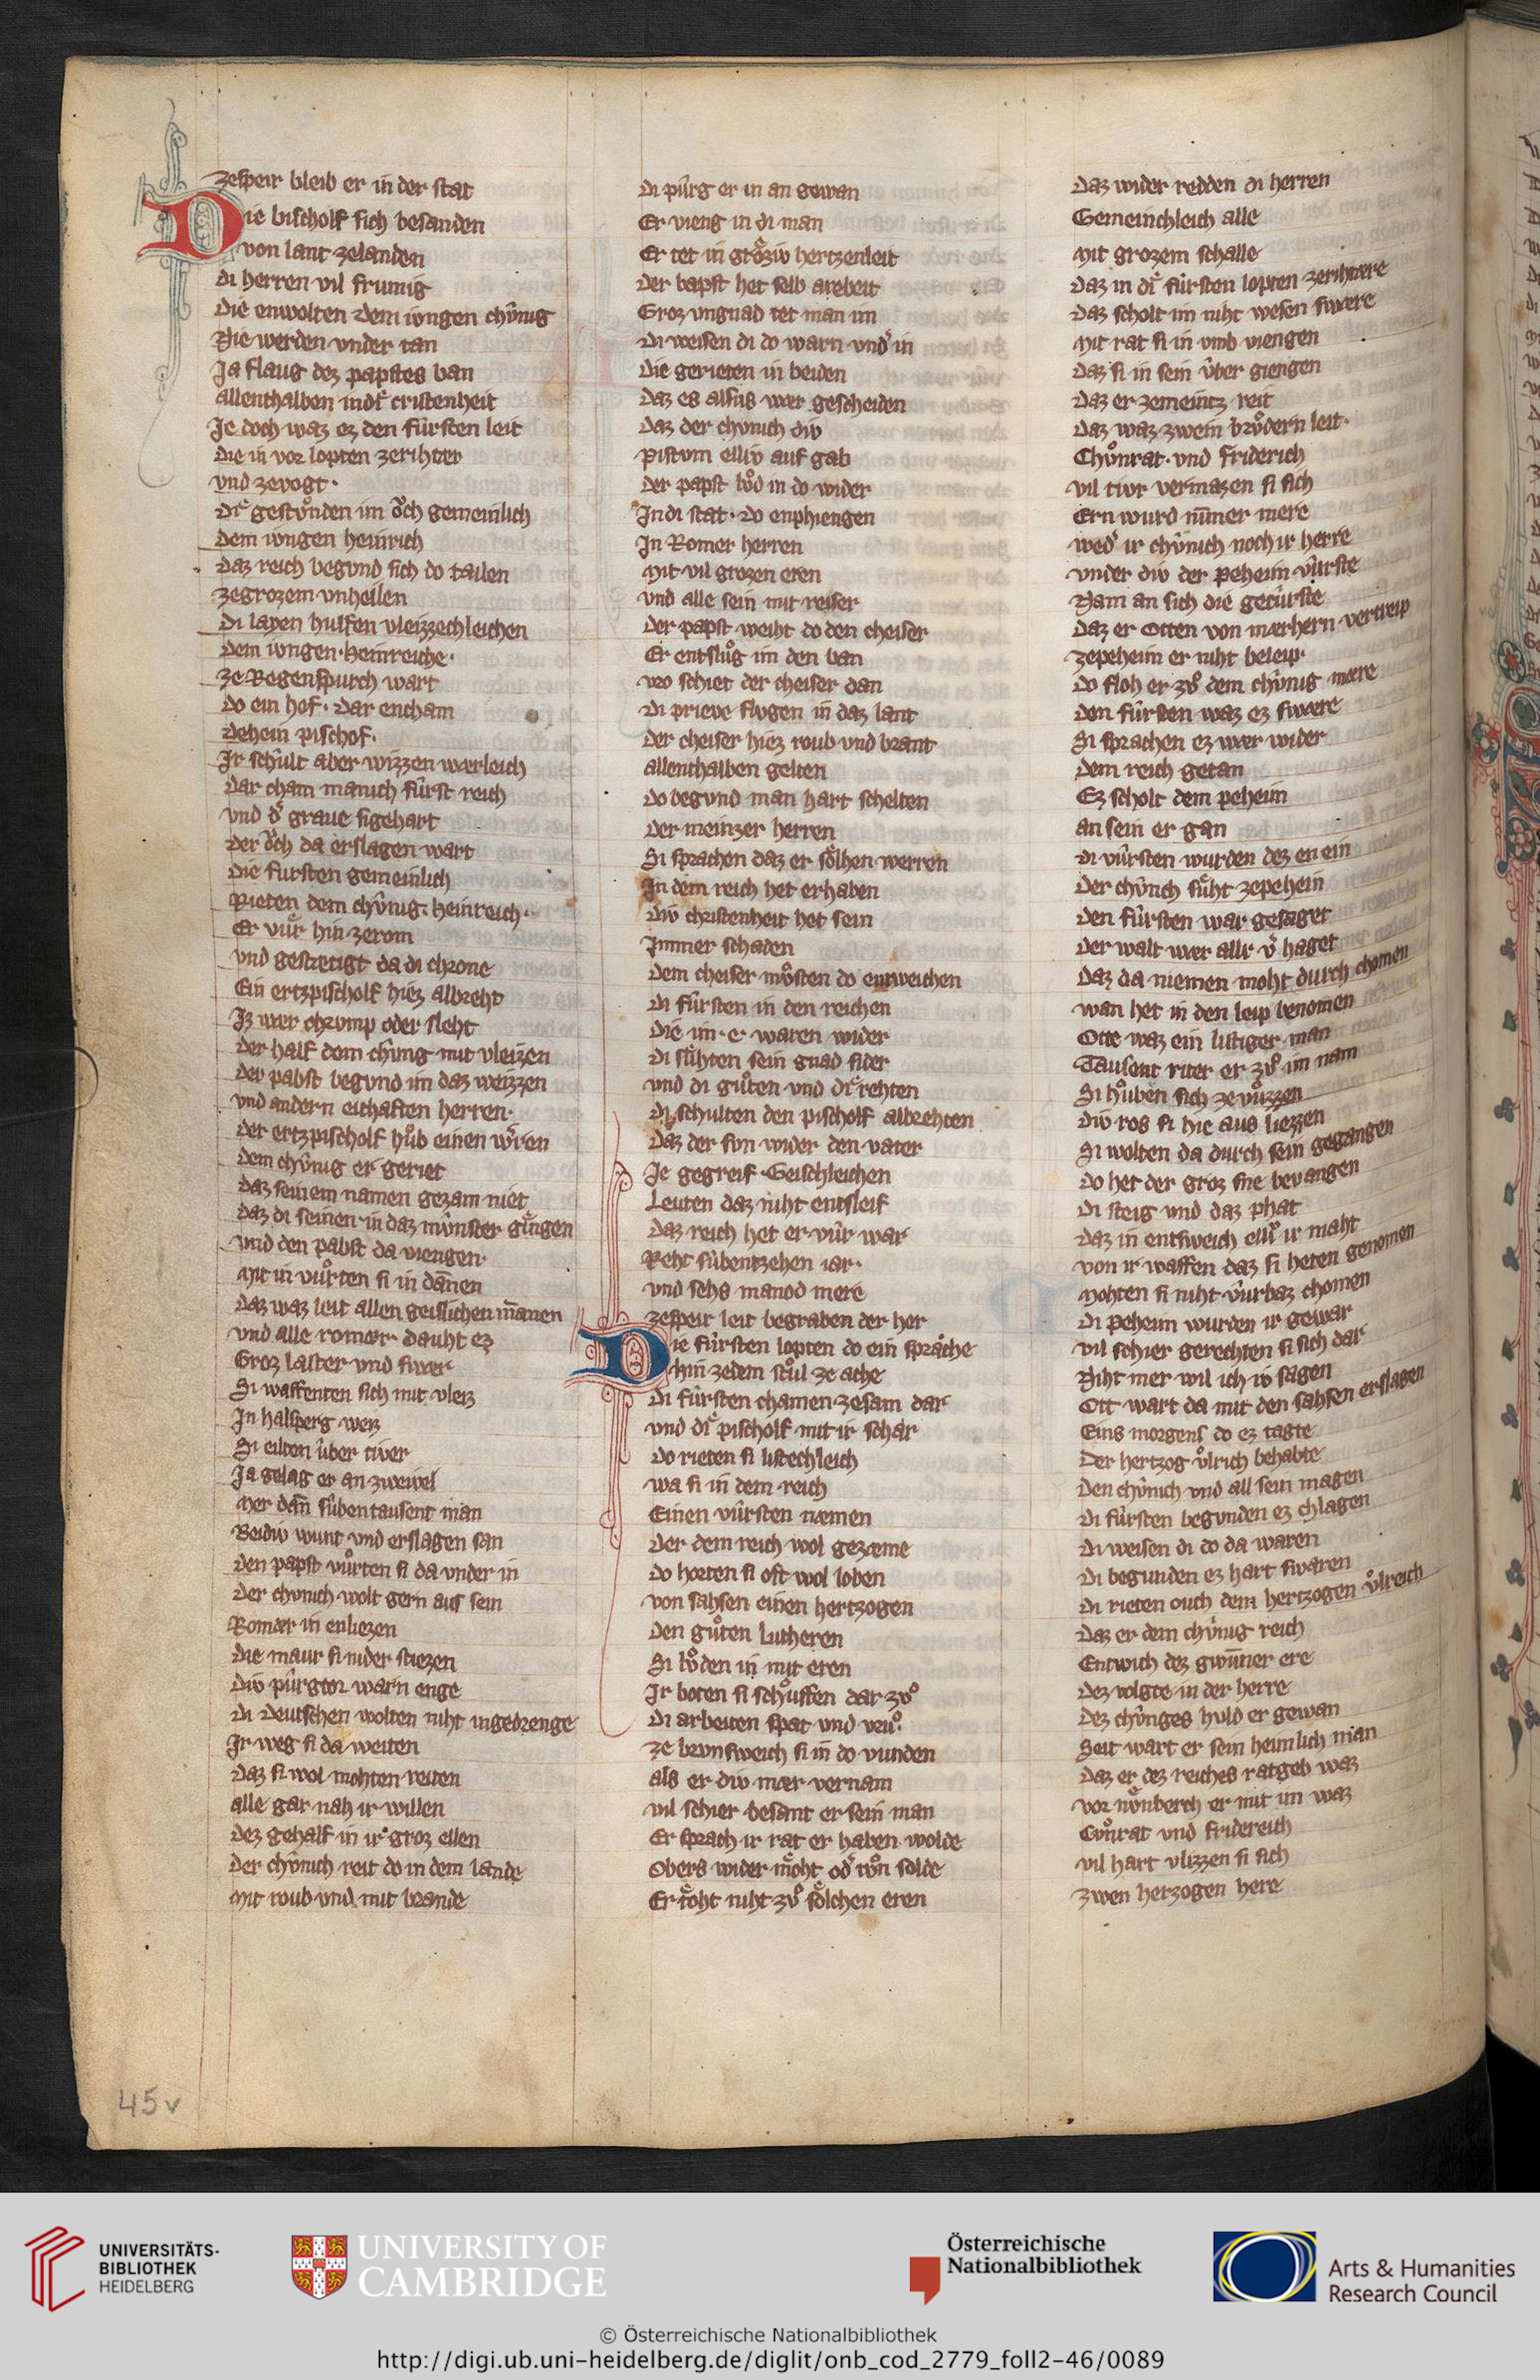 zespeir bleib er in der stat
Die bischolf sich besanden
von lant zelanden
di herren vil frumig
Die enwolten dem iungen chv̂nig
Nie werden vnder tan
Ja flaug dez papstes ban
allenthalben indˢ cristenheit
Je doch waz ez den fûrsten leit
die in vor lopten zerihter
vnd zevogt·
diͤ gestvnden im ôch gemeinlich
dem iungen heinrich
daz reich begvnd sich do tailen
zegrozem vnheilen
Di layen hulfen vleizzechleichen
dem iungen·heinreiche·
ze Regenspurch wart
do ein hof· dar encham
dehein pischof·
Jr schûlt aber wizzen wærleich
dar cham manich fûrst reich
vnd dˢ graue sigehart
der ôch da erslagen wart
die fursten gemeinlich
Rieten dem chv̂nig· heinreich·
Er vuͤr hin zerom
vnd gestætigt da di chrone
Ein ertzpischolf hiez albreht
Jz wer chrvmp oder sleht
der half dem chûnig mit vleizen
der pabst begvnd im daz weizzen
vnd andern eithaften herren·
der ertzpischolf hůb einen wˢren
dem chûnig er geriet
daz seinem namen gezam niet
daz di seinen in daz mûnster giͤngen
vnd den pabst da viengen·
Mit in vůrten si in dānen
daz waz leit allen geislichen mānen
vnd alle romær dauht ez
Groz laster vnd swer
Si waffenten sich mit vleiz
Jn halsperg weiz
Si eilten über tiver
Ja gelag er an zweivel
Mer dañ sûbentausent man
Beidiv wunt vnd erslagen san
den papst vůrten si da vnder in
der chvnich wolt gern aus sein
Romær in enliezen
die maur si nider stiezen
div pûrgtor warn enge
di deutschen wolten niht ingedrenge
Jr weg si da weiten
daz si wol mohten reiten
alle gar nah ir willen
dez gehalf in ir groz ellen
der chv̂nich reit do in dem lande
mit roub vnd mit brande
di pûrg er in an gewan
Er vieng in di man
Er tet in grôziv hertzenleit
der bapst het selb arebeit
Groz vngnad tet man im
di weisen di do warn vndˢ in
die gerieten in beiden
daz es alsus wær gescheiden
daz der chvnich div
pistvm elliv auf gab
der papst lůd in do wider
Jn di stat· do enphiengen
Jn Romer herren
Mit vil grozen eren
vnd alle sein mit reiser
der papst weiht do den cheiser
Er entslůg im den ban
vro schiet der cheiser dan
di prieve flvgen in daz lant
der cheiser hiez roub vnd brant
allenthalben gelten
do begvnd man hart schelten
der meinzer herren
Si sprachen daz er sôlhen werren
Jn dem reich het erhaben
div christenheit het sein
Jmmer schaden
dem cheiser můsten do entweichen
di fûrsten in den reichen
die im·e·waren wider
di sûhten sein gnad sider
vnd di gůten vnd diͤ rehten
di schulten den pischolf albrehten
daz der svn wider den vater
Je gegreif·Geischleichen
Leuten daz niht entsleif
daz reich het er vûr war
Reht sûbentzehen iar·
vnd sehs manod mere
zespeir leit begraben der her
Die fûrsten lopten do ein sprâche
hin zedem stůl ze ache
di fûrsten chamen zesam dar
vnd diͤ pischolf mit ir schar
do rieten si listechleich
wa si in dem reich
Einen vûrsten næmen
der dem reich wol gezæme
do horten si oft wol loben
von sahsen einen hertzogen
den gůten Lutheren
Si lůden in mit eren
Jr boten si schůffen dar zů
di arbeiten spat vnd vrů·
ze brvnsweich si in do vunden
als er div mær vernam
vil schier besant er sein man
Er sprach ir rat er haben wolde
Obers wider môht odˢ tůn solde
Er tôht niht zů sôlchen eren
daz wider redden di herren
Gemeinchleich alle
mit grozem schalle
daz in diͤ fûrsten lopten zerihtære
daz scholt im niht wesen swære
Mit rat si in vmb viengen
daz si in sein ûber giengen
daz er zemeintz reit
daz waz zwein brůdern leit·
Chůnrat·vnd friderich
vil tivr vermazen si sich
Ern wurd nīmer mere
wedˢ ir chûnich noch ir herre
vnder div der peheim vûrste
Nam an sich die getûrste
daz er Otten von mærhern vertreip
zepeheim er niht beleip·
do floh er zů dem chûnig mære
den fûrsten waz ez swære
Si sprachen ez wær wider
dem reich getan
Ez scholt dem peheim
an sein er gan
di vûrsten wurden dez en ein
der chûnich fûr zepehein
den fûrsten war gesaget
der walt wær aller vˢ haget
daz da niemen moht durch chomen
wan het in den leip benomen
Otte waz ein listiger man
Tausent riter er zů im nam
Si hůben sich ze vůzzen
div ros si hie aus liezzen
Si wolten da durch sein gegangen
do het der groz sne bevangen
di steig vnd daz phat
daz in entsweich elliv ir maht
von ir waffen daz si heten genomen
Mohten si niht vûrbaz chomen
di peheim wurden ir gewar
vil schier gerechten si sich dar
Niht mer wil ich iv sagen
Ott wart da mit den sahsen erslagen
Eins morgens do ez tagte
der hertzog ůlrich behabte
den chûnich vnd all sein magen
di fûrsten begvnden ez chlagen
di weisen di do da waren
di begunden ez hart swaren
di rieten ouch dem hertzogen ůlreich
daz er dem chûnig reich
Entwich dez gwūner ere
dez volgte in der herre
dez chûnges huld er gewan
Seit wart er sein heimlich man
daz er dez reiches ratgeb waz
vor nůnberch er mit im waz
Cůnrat vnd fridereich
vil hart vlizzen si sich
zwen herzogen here
45v
UNIVERSITÄTS-
BIBLIOTHEK
HEIDELBERG
UNIVERSITY OF
CAMBRIDGE
Österreichische
Nationalbibliothek
Arts & Humanities
Research Council
© Österreichische Nationalbibliothek
http://digi.ub.uni-heidelberg.de/diglit/onb_cod_2779_foll2-46/0089